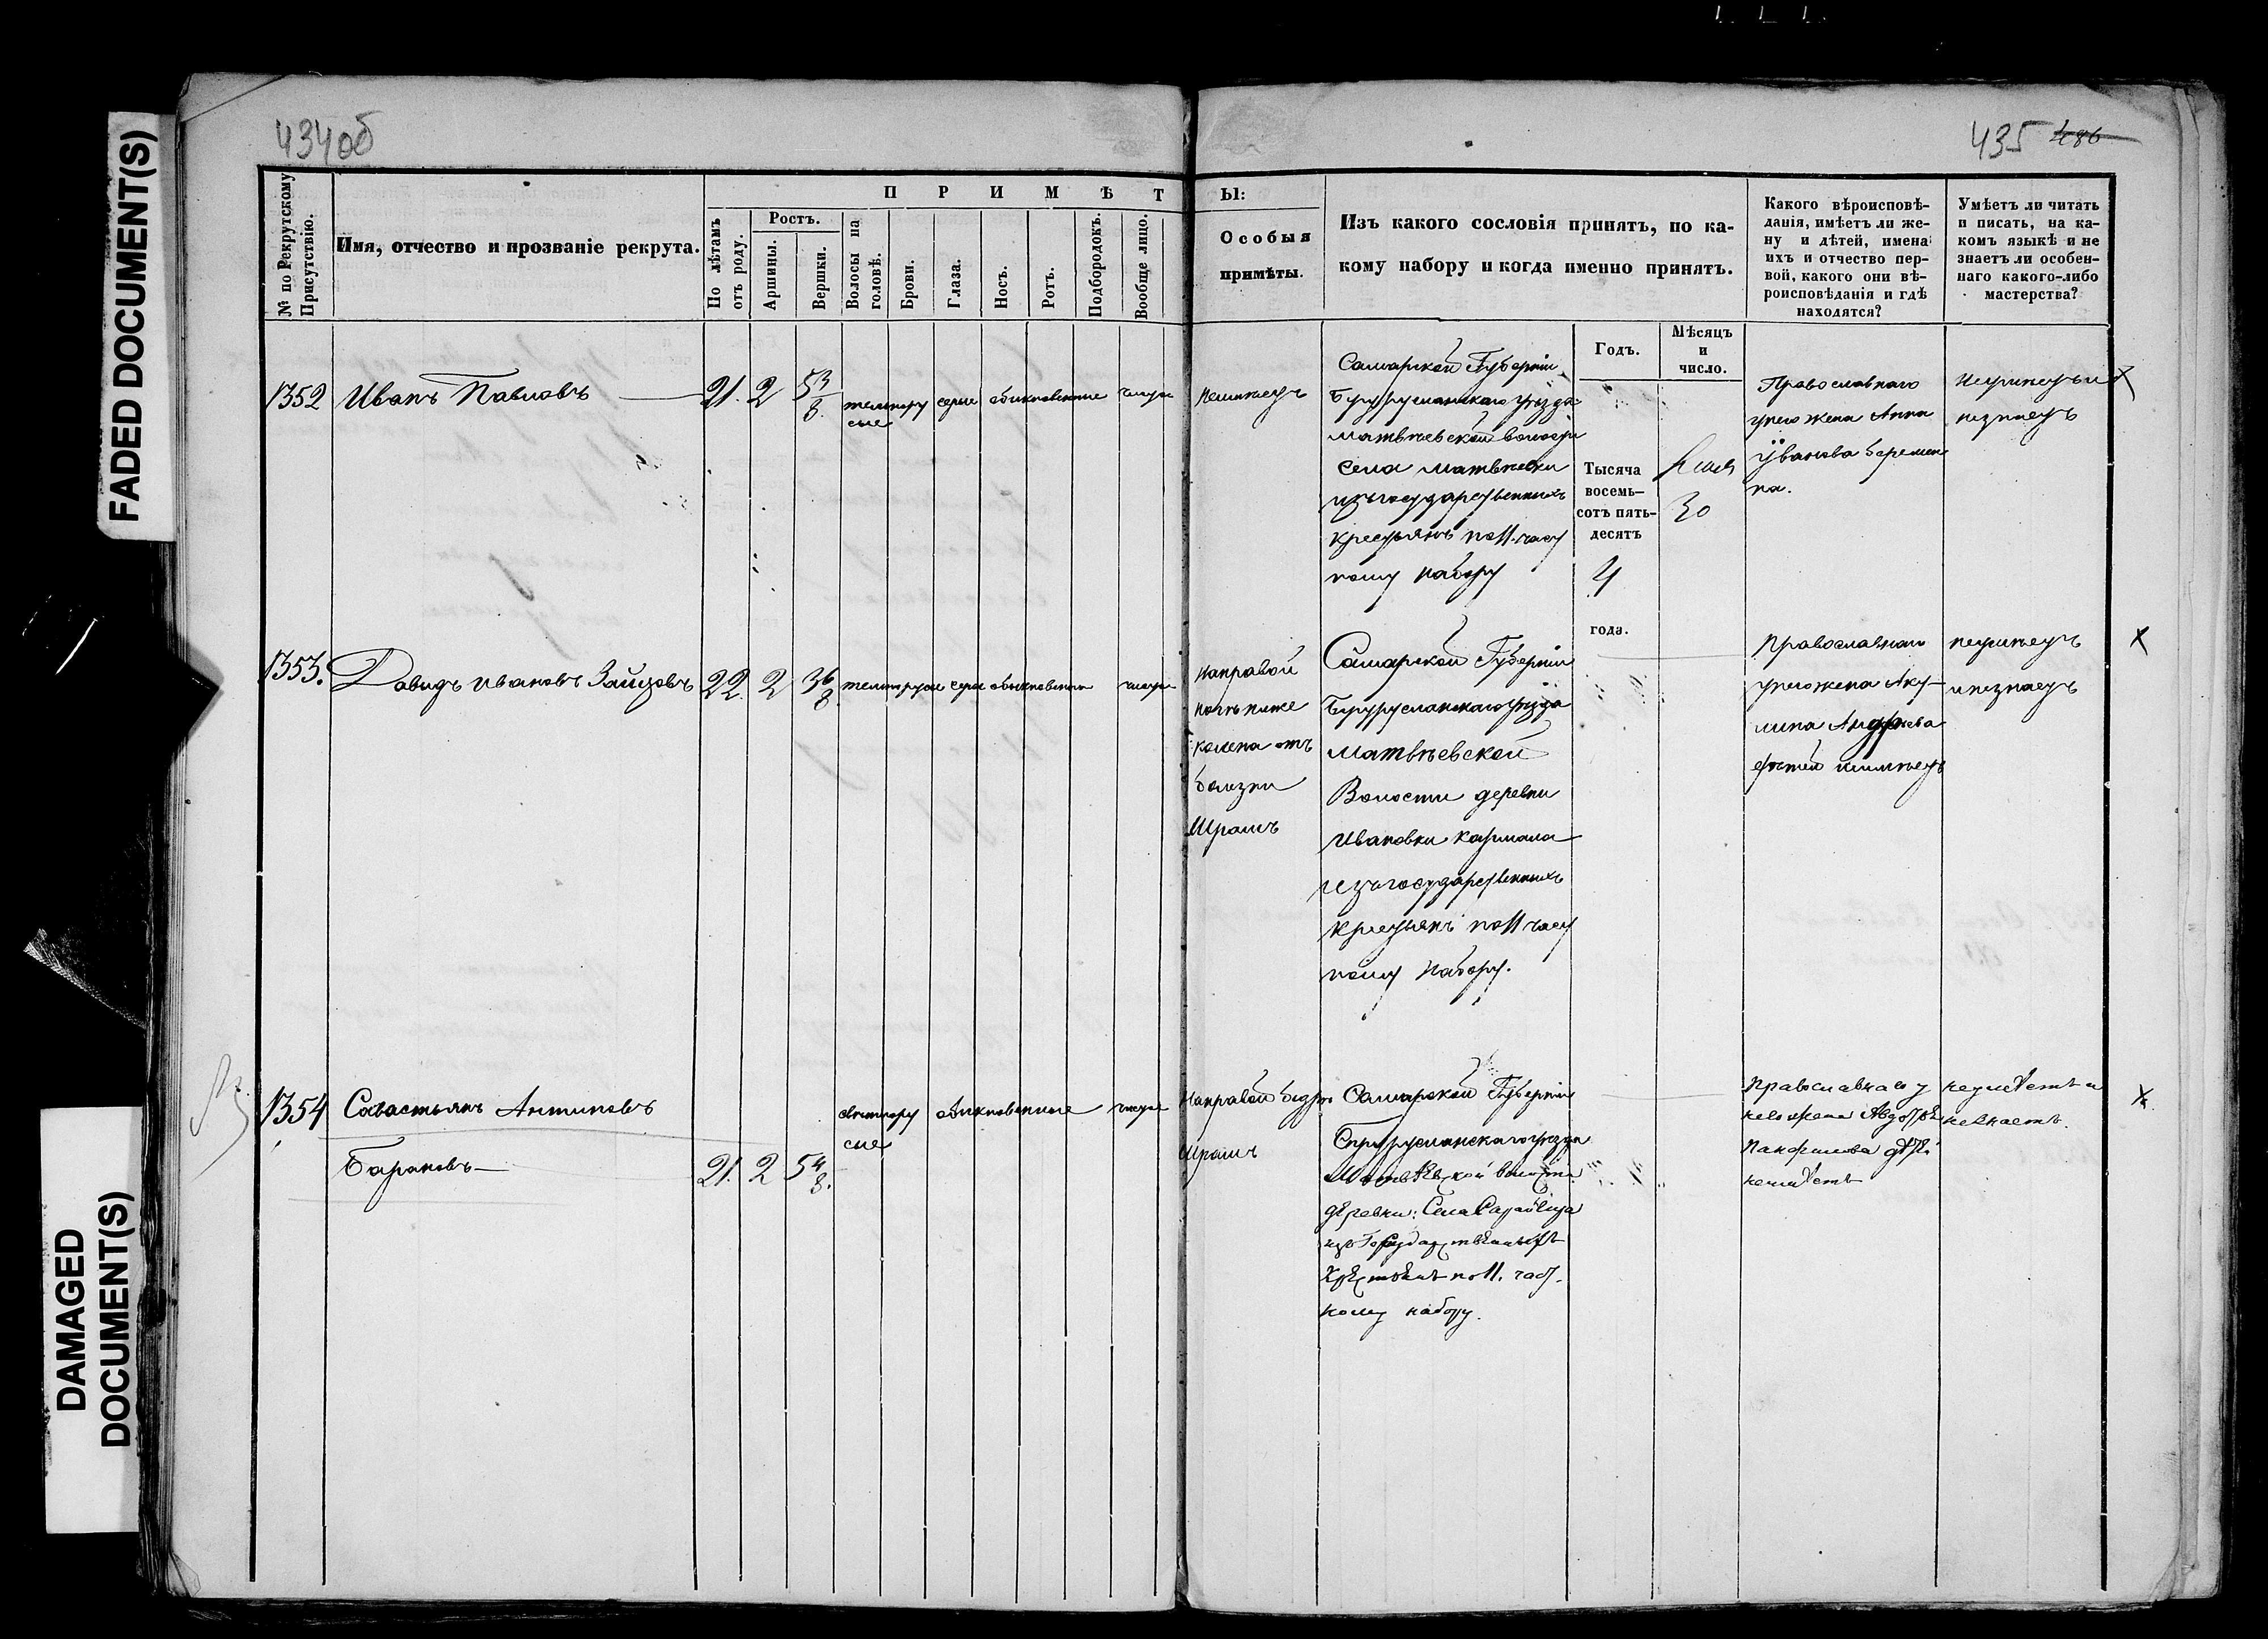 FADED DOCUMENT(S)
DAMAGED
DOCUMENT(S)
434об
435 486
№ по Рекрутскому
Присутствію.
Имя, отчество и прозваніе рекрута.
ПРИМѢТЫ:
По лѣтамъ
отъ роду.
Ростъ.
Аршины.
Вершки.
Волосы на
головѣ.
Брови.
Глаза.
Носъ.
Ротъ.
Подбородокъ.
Вообще лицо.
Особыя
примѣты.
Изъ какого сословія принятъ, по ка-
кому набору и когда именно принятъ.
Какого вѣроисповѣ-
данія, имѣетъ ли же-
ну и дѣтей, имена
ихъ и отчество пер-
вой, какого они вѣ-
роисповѣданія и гдѣ
находятся?
Умѣетъ ли читать
и писать, на ка-
комъ языкѣ и не
знаетъ ли особен-
наго какого-либо
мастерства?
Годъ.
Мѣсяцъ
и
число.
Тысяча
восемь-
сотъ пять-
десятъ
4
года.
30
1352
Иванъ Павловъ
21. 2 5 3/8.
темнору
сые
серые
обыкновенные
чистое
Неимѣетъ
Самарской Губерніи
Бугурусланскаго уѣзда
Матвѣевской волости
села Матвѣевки
изъ государственныхъ
крестьянъ по 11. част
ному набору
Православнаго
унего жена Анна
Иванова беремен
на.
Неумѣетъ и
незнаетъ
X
1353.
Давидъ Ивановъ Зайцовъ
22. 2 3 6/8.
темнорусые серые обыкновенные
чистое
Направой
ногѣ ниже
колена отъ
болезни
Шрамъ
Самарской Губерніи
Бугурусланскаго уѣзда
Матвѣевской
Волости деревни
Ивановки Кармала
изъ государственныхъ
крестьянъ по 11 част
ному набору.
Православнаго
унего жена Аку-
лина Андреева
детей неимѣетъ
неумѣетъ
и незнаетъ
X
1354
Савастьянъ Антиповъ
Барановъ
21. 2 5 4/8.
свѣтлору
сые
обыкновенные
чистое
Направой бедрѣ
Шрамъ
Самарской Губерніи
Бугурусланскаго уѣзда
Матвѣевской волости
деревни: Села
изъ Государственныхъ
Крестьянъ по 11. част.
ному набору.
Православнаго у
него жена Авдотья
Панфилова дѣтей
неимѣетъ
неумѣетъ и
незнаетъ.
X